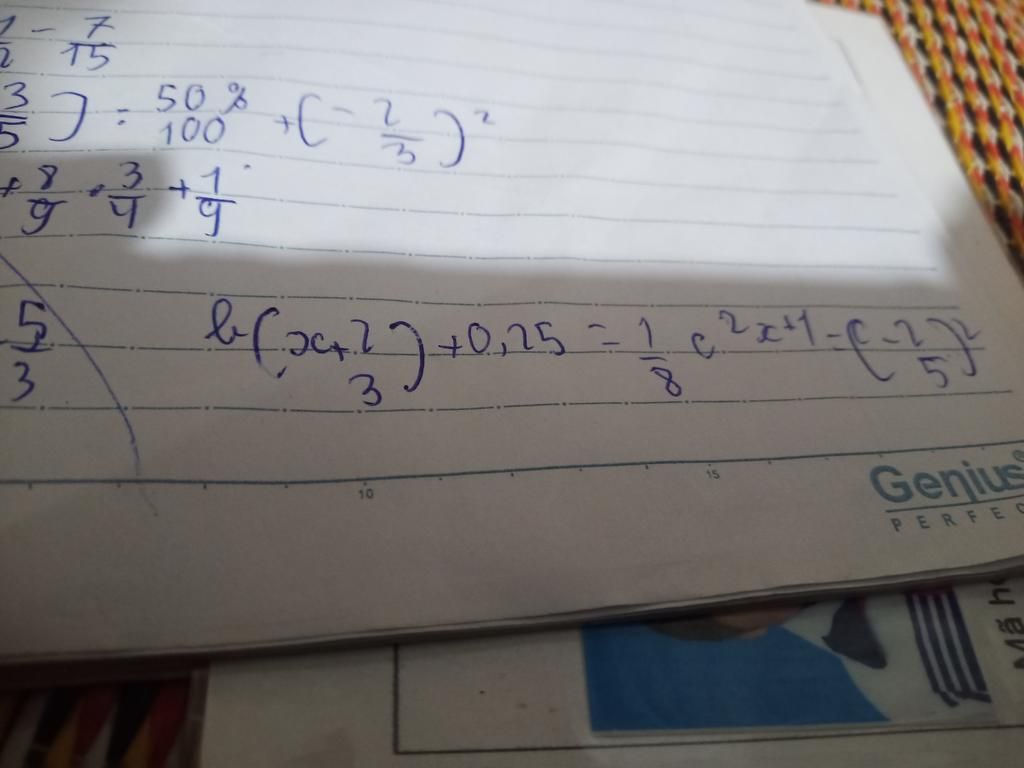 1/2 - 7/15
3/5 ] : 50%/100 + (- 2/3)²
+ 8/9 . 3/4 + 1/9
5/3 b (x + 2/3) + 0,25 = 1/8 c 2x+1 = (-2/5)²
10 15
Genius®
PERFEC
Mã h